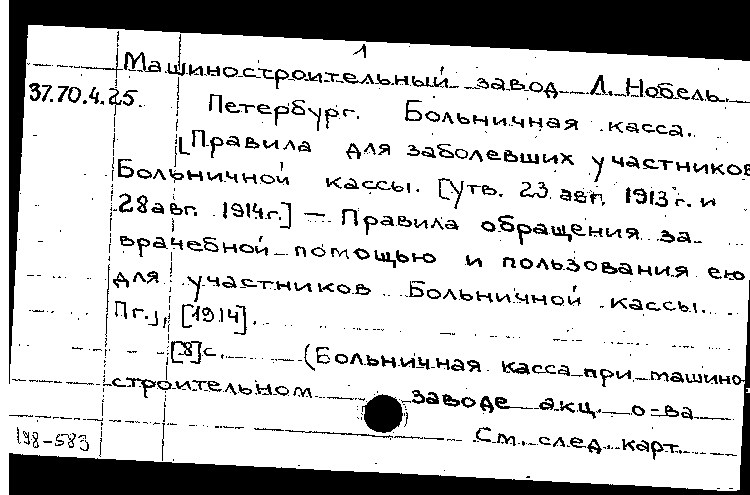 1
Машиностроительный завод Л. Нобель.
37.70.4.25. Петербург. Больничная касса.
[Правила для заболевших участников
Больничной кассы. [Утв. 23 авг. 1913 г. и
28 авг. 1914 г.] — Правила обращения за
врачебной помощью и пользования ею
для участников Больничной кассы.
Пг.], [1914].
[8] с. (Больничная касса при машино-
строительном заводе акц. о-ва
См. след. карт.
198-583